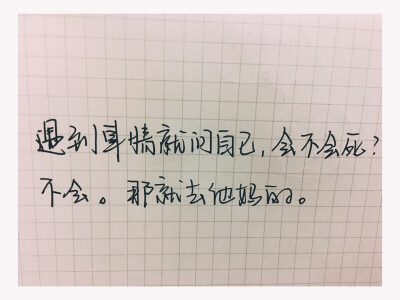 遇到事情就问自己，会不会死？
不会。那就去他妈的。